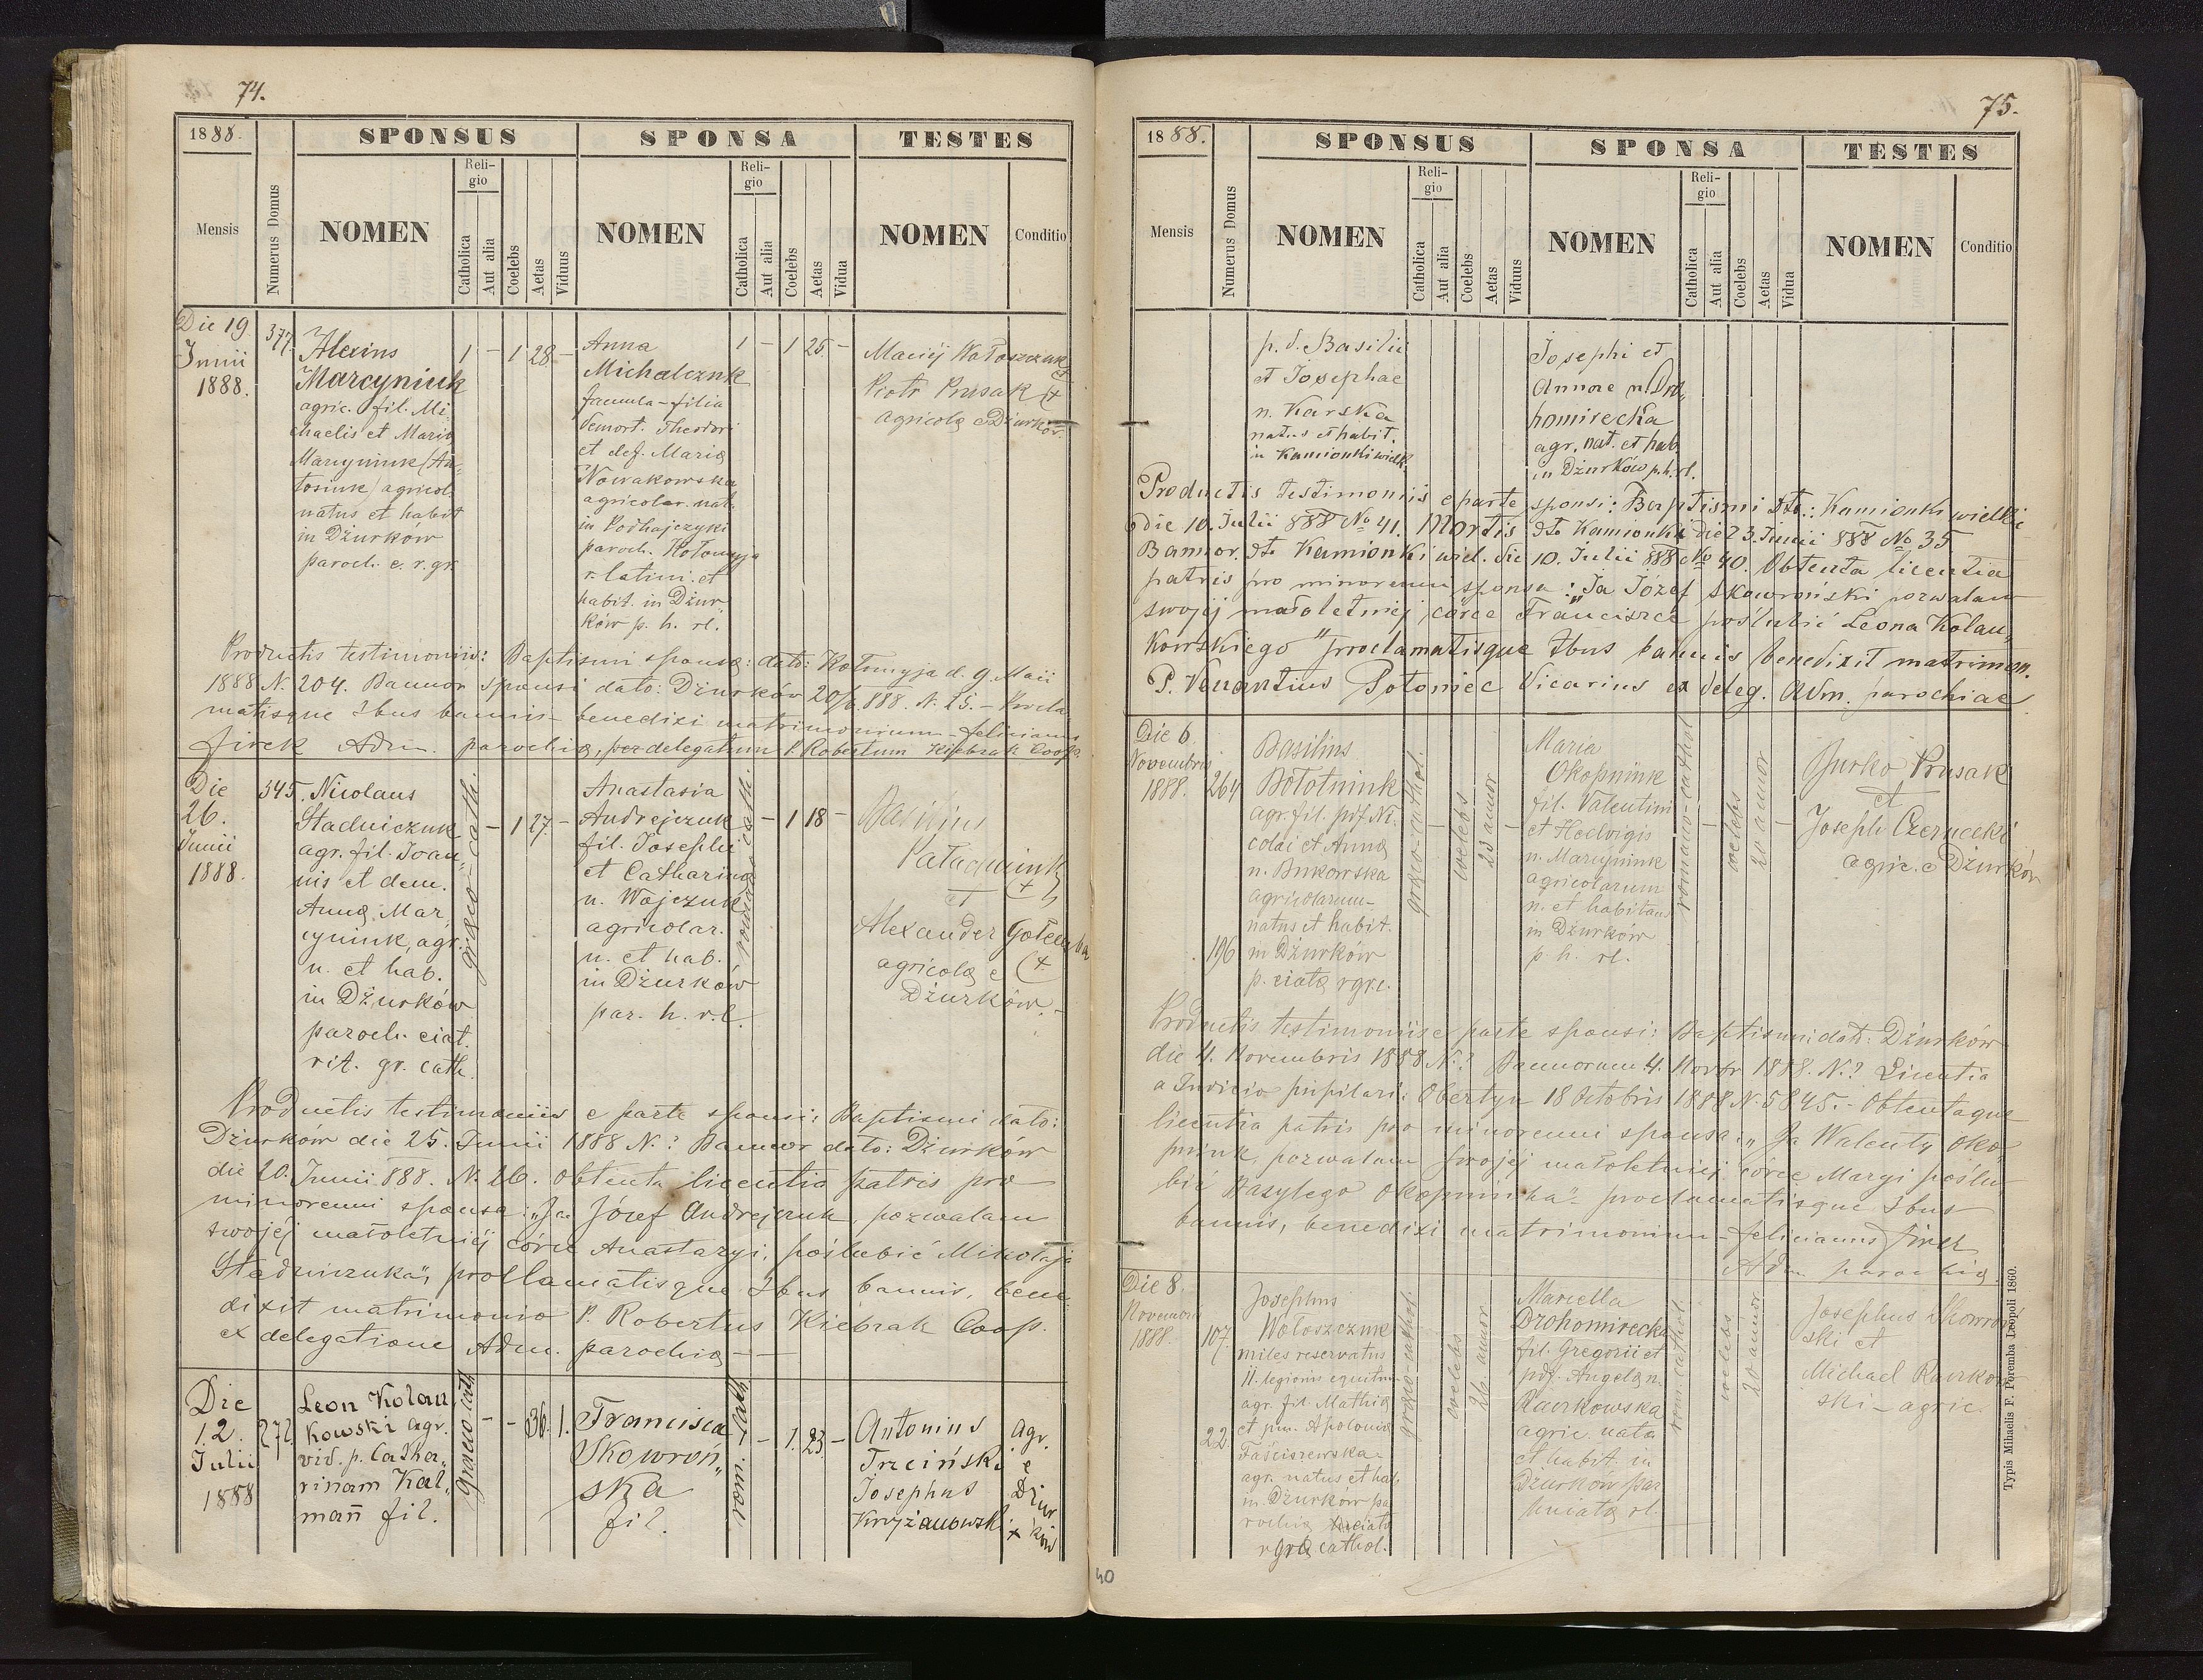 74.
1888.
SPONSUS
SPONSA
TESTES
Mensis
Numerus Domus
NOMEN
Religio
Catholica
Aut alia
Coelebs
Aetas
Viduus
NOMEN
Religio
Catholica
Aut alia
Coelebs
Aetas
Vidua
NOMEN
Conditio
Die 19
Junii
1888.
377
Alexius
Marcyniuk
agric. fil. Mi
chaelis et Mariæ
Marcyniuk/An
tosiuk/agricol.
natus et habit
in Dżurków
paroch. e. r. gr.
1 - 1 28 -
Anna
Michalczuk
famula - filia
demort. Theodori
et def. Mariæ
Nowakowska
agricolar. nat.
in Podhajczyki
paroch. Kołomyja
r. latini. et
habit. in Dżur
ków p. h. rl.
1 - 1 25 -
Maciej Wałoszczuk
Piotr Prusak (+
agricolæ e Dżurków.
Productis testimoniis: Baptismi sponsæ: dato: Kołomyja d. 9. Maii
1888 N. 204. Bannor sponsi dato: Dżurków 20/6 888. N. 25. - Procla
matisque 3bus bannis - benedixi matrimonium - felicianus
Firek Adm. parochiæ, per delegatum P. Robertum Kiebrak Coop.
Die
26.
Junii
1888.
345.
Nicolaus
Stadniczuk
agr. fil. Joan„
nis et dem.
Annæ Mar
cyniuk, agr.
n. et hab.
in Dżurków
paroch. eiat.
rit. gr. cath.
græco-cath.
- 1 27. -
Anastasia
Andrejczuk
fil. Josephi
et Catharinæ
n. Wojczuk
agricolar.
n. et hab.
in Dżurków
par. h. r. l.
romano cath.
- 1 18 -
Basilius
Pałaguniuk
(+)
et
Alexander Gołemba
agricolæ e (+
Dżurków. -
Productis testimoniis e parte sponsi: Baptismi dato:
Dżurków die 25. Junii 1888 N.? Bannor dato: Dżurków
die 20. Junii 888. N. 26. Obtenta licentia patris pro
minorenni sponsa: „Ja Józef Andrejczuk, pozwalam
swojéj małoletniéj córce Anastazyi, poślubić Mikołaja
Stadniczuka", proclamatisque 3bus bannis, bene
dixit matrimonio P. Robertus Kiebrak Coop.
ex delegatione Adm. parochiæ -
Die
12.
Julii
1888
272
Leon Kolan
kowski agr.
vid. p. Catha„
rinam Kal„
man̄ fil.
græco cath
- - 36. 1.
Francisca
Skowroń„
ska
fil.
rom. cath
- 1. 23 -
Antonius
Trzciński
Josephus
Krzyżanowski
agr.
e
Dżur
+ ków
75.
1888.
SPONSUS
SPONSA
TESTES
Mensis
Numerus Domus
NOMEN
Religio
Catholica
Aut alia
Coelebs
Aetas
Viduus
NOMEN
Religio
Catholica
Aut alia
Coelebs
Aetas
Vidua
NOMEN
Conditio
p. d. Basilii
et Josephae
n. Karska
natus et habit.
in Kamionki wielk.
Josephi et
Annae n. Dro„
homirecka
agr. nat. et hab.
in Dżurków p. h. rl.
Productis testimoniis e parte sponsi: Baptismi dto.: Kamionki wielkie
die 10. Julii 888 No 41. Mortis dto Kamionki die 23. Junii 888 No 35
Bannor. dto Kamionki wiel. die 10. Julii 888 No 40. Obtenta licentia
patris pro minorenni sponsa: „Ja Józef Skowroński pozwalam
swojéj małoletniej córce Franciszce poślubić Leona Kolan„
kowskiego" proclamatisque 3bus bannis benedixit matrimon.
P. Venantius Potoniec Vicarius ex deleg. Adm. parochiae
Die 6
Novembris
1888.
264
196
Basilius
Bołotniuk
agr. fil. pdf Ni
colai et Annæ
n. Bukowska
agricolarum -
natus et habit.
in Dżurków
p. eiatæ rgr.c.
græco-cathol.
-
coelebs
23 annor
-
Maria
Okopniuk
fil. Valentini
et Hedvigis
n. Marcyniuk
agricolarum
n. et habitans
in Dżurków
p. h. rl.
romano-cathol
-
coelebs
20 annor
-
Jurko Prusak
et
Joseph Czernecki
agric. e Dżurków
Productis testimoniis e parte sponsi: Baptismi dato: Dżurków
die 4. Novembris 1888 N.? Bannorum 4. Novbr 1888. N.? Licentia
a Iudicio pupilari: Obertyn 18 Octobris 1888 N. 5845. - Obtentaque
licentia patris pro minorenni sponsa: „Ja Walenty Oko
pniuk, pozwalam swojéj małoletniéj córce Maryi poślu
bić Bazylego Okopniuka" - proclamatisque 3bus
bannis, benedixi matrimonium - Felicianus Firek
Adm. parochiæ
Die 8.
Novembris
1888.
107.
22
Josephus
Wołoszczuk
miles reservatus
11. legionis equitum
agr. fil. Mathiæ
et pm. Apoloniæ
Faściszewska
agr. natus et hab.
in Dżurków pa
rochiæ eiata
r græ cathol.
græco-cathol.
coelebs
26. annor
Marcella
Drohomirecka
fil. Gregorii et
pdf. Angelæ n.
Raczkowska
agric. nata
et habit. in
Dżurków par
huiatæ rl.
rom. cathol.
coelebs
20 annor
Josephus Skowroń
ski et
Michael Raczkow
ski - agric.
Typis Mihaelis F. Poremba Leopoli 1860.
40